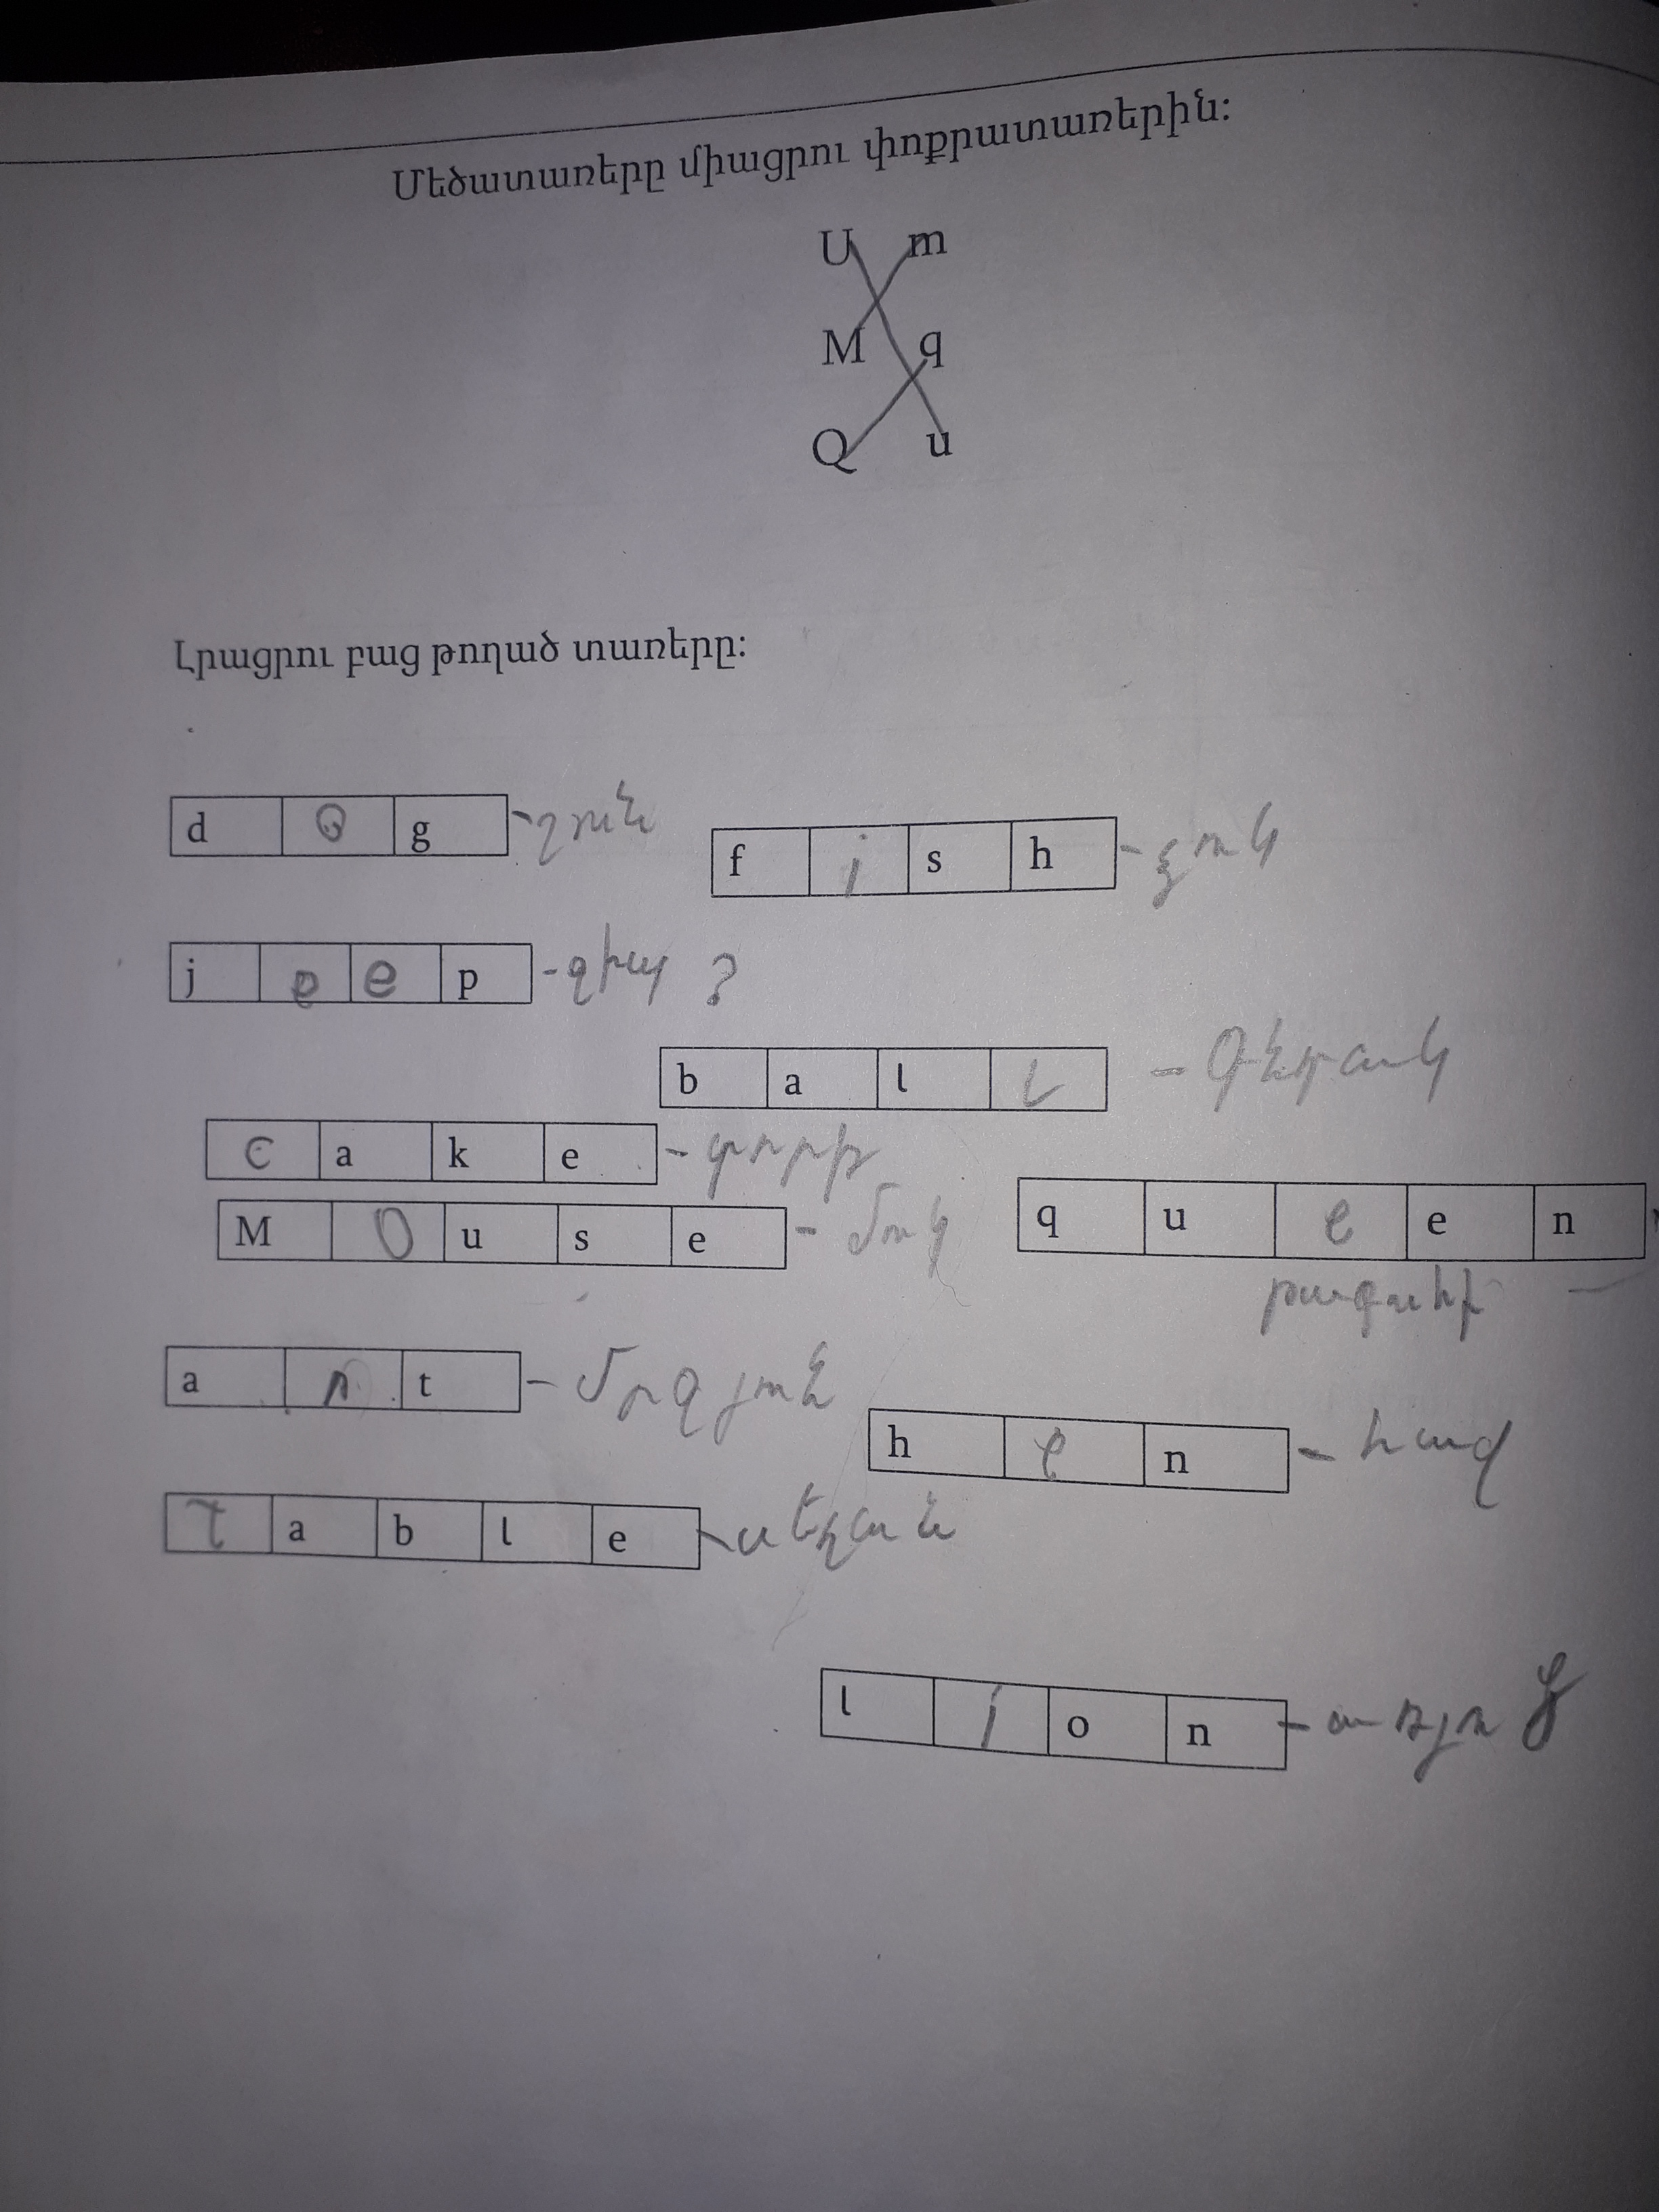 Մեծատառերը միացրու փոքրատառերին:
U m
M q
Q u
Լրացրու բաց թողած տառերը:
d o g - շուն
f i s h - ձուկ
j e e p - ջիպ ?
b a l l - Գնդակ
c a k e - տորթ
M o u s e - մուկ
q u e e n
թագուհի -
a n t - մրջյուն
h e n - հավ
t a b l e - սեղան
l i o n - առյուծ